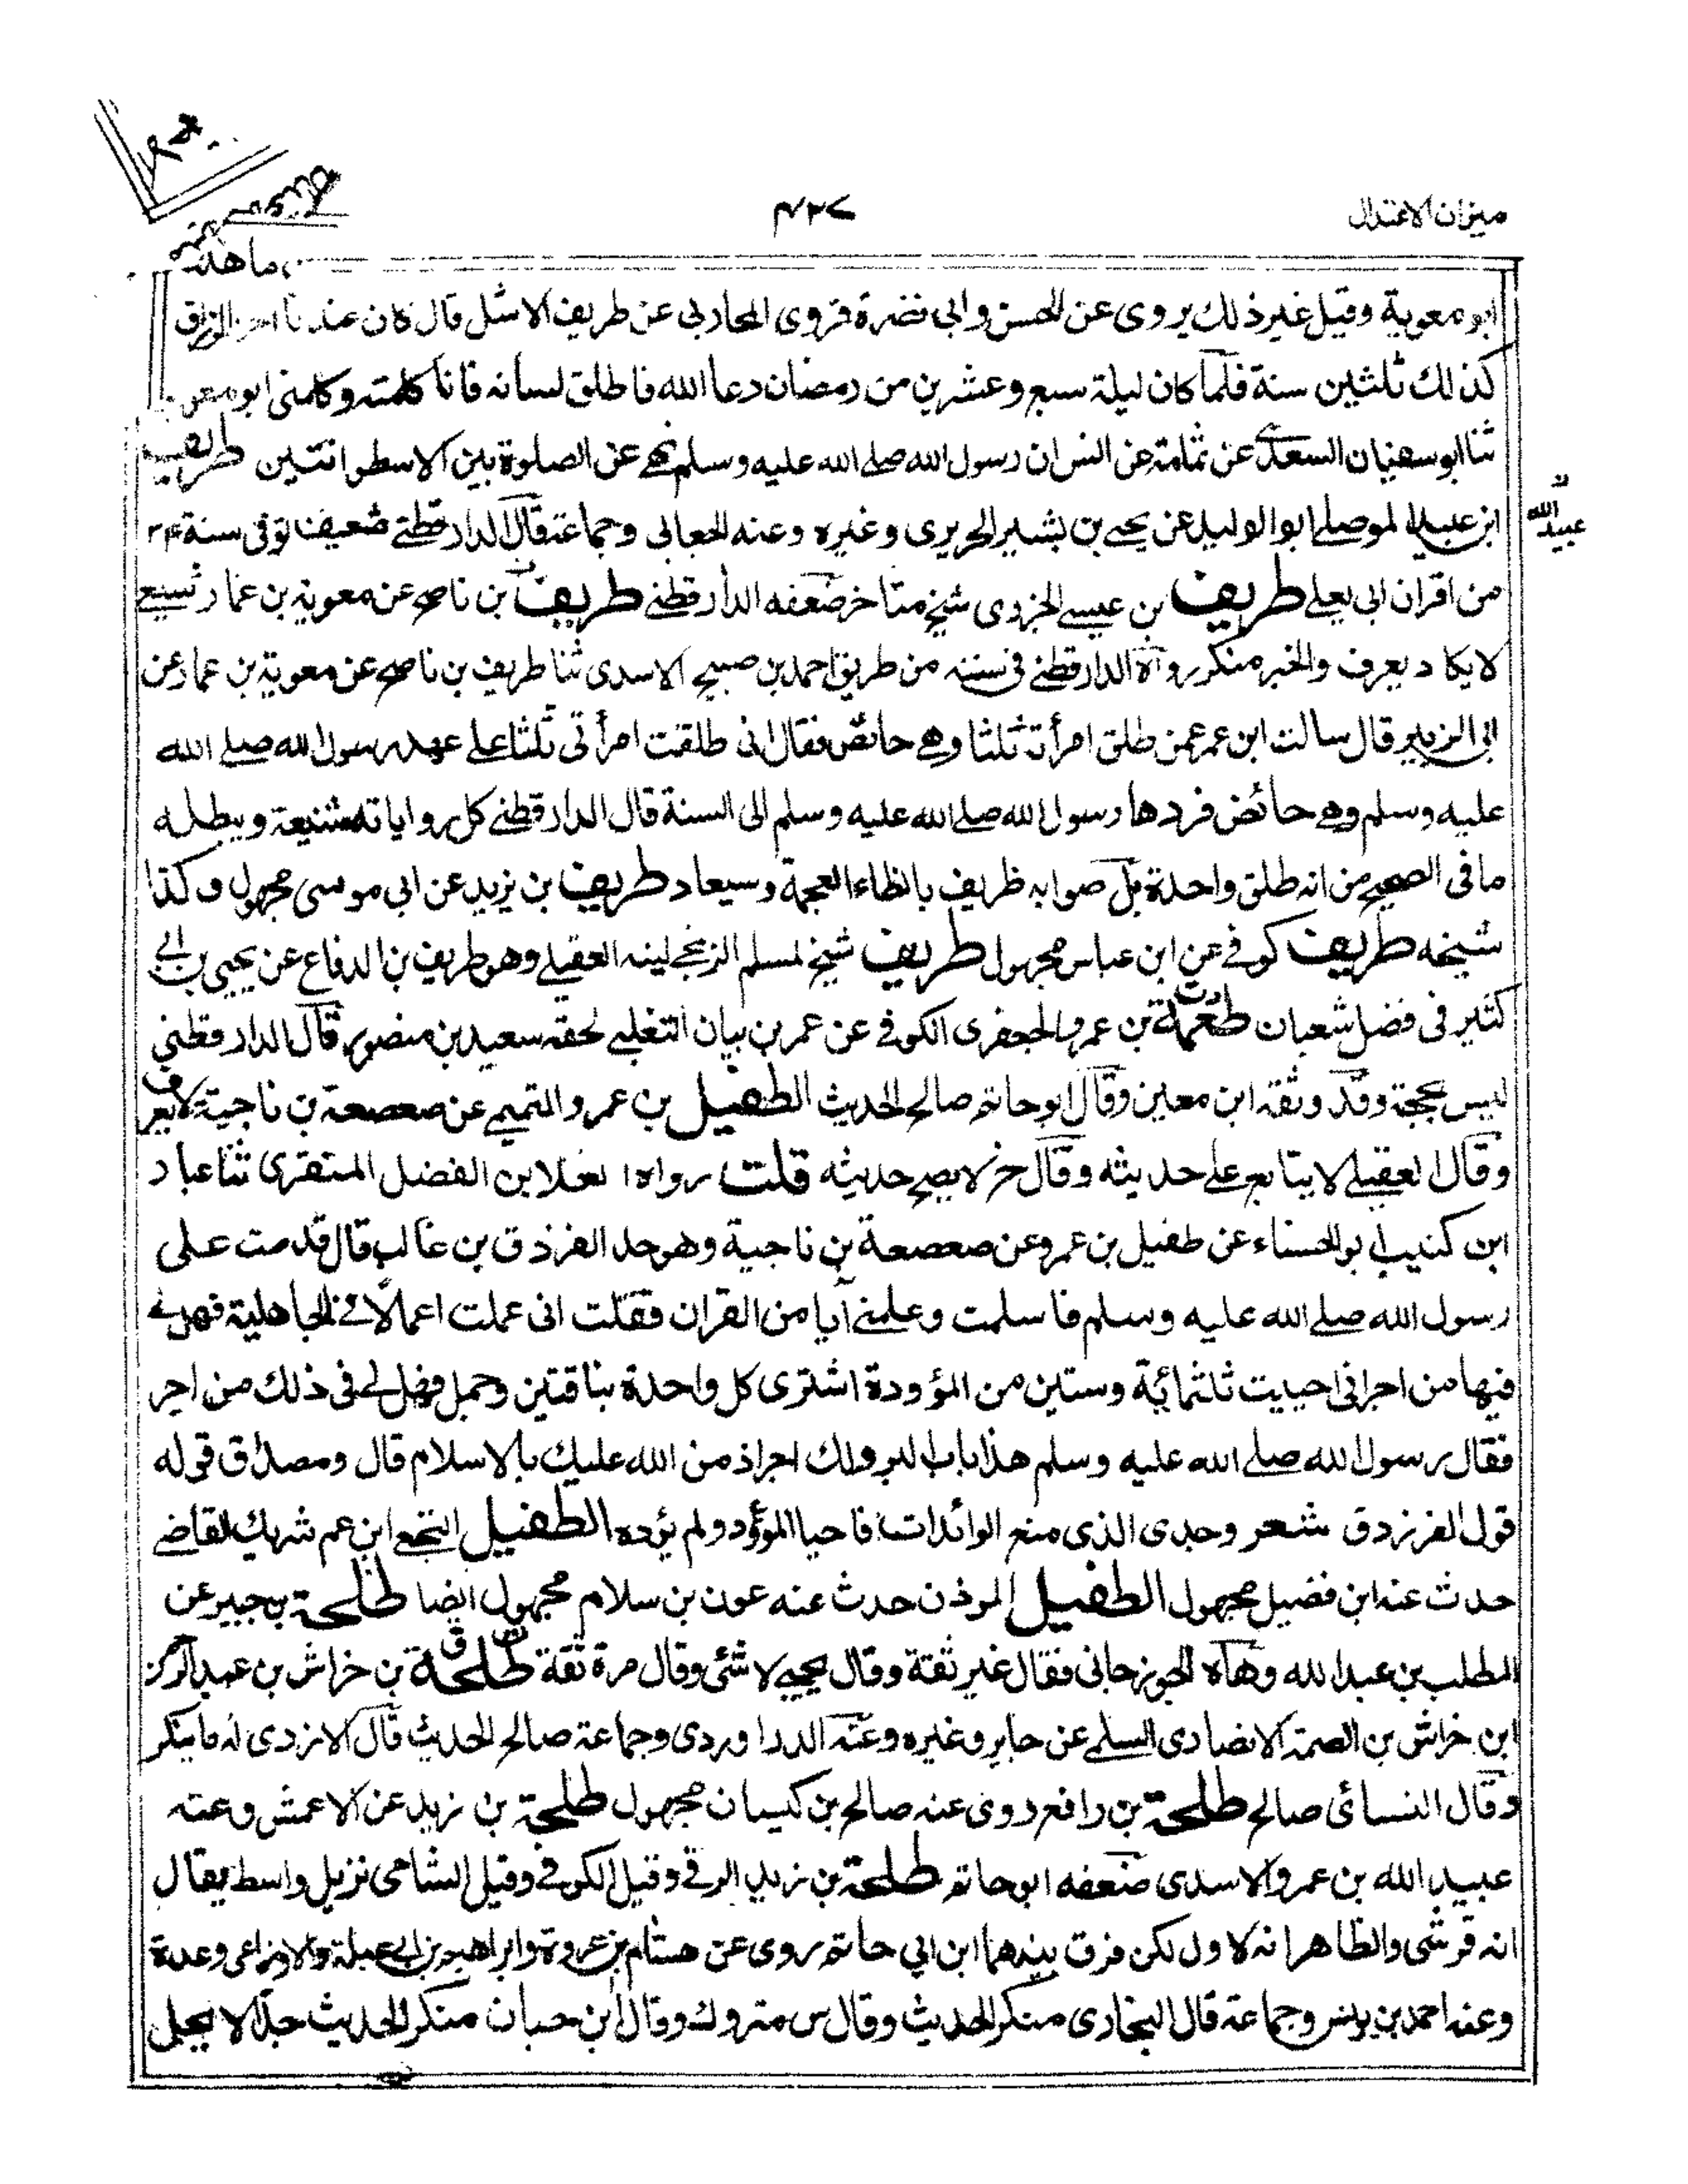 ميزان الاعتدال
۴۲۷
ابو معوية وقيل غير ذلك يروى عن الحسن وابى نضرة فروى المحاربى عن طريف الاشل قال كان عندنا
كذلك ثلثين سنة فلما كان ليلة سبع وعشرين من رمضان دعا الله فاطلق لسانه فانا كلمته وكلمنى ابو معوية
ثنا ابو سفيان السعدى عن ثمامة عن انس ان رسول الله صلے الله عليه وسلم نهى عن الصلوة بين الاسطوانتين طريف
ابن عبيد الموصلے ابو الوليد عن يحيى بن بشير الحريرى وغيره وعنه الجعابى وجماعة قال الدارقطنے ضعيف توفى سنة
عبيد الله
من اقران ابى يعلے طريف بن عيسے الجزرى شيخ متاخر ضعفه الدارقطنے طريف بن ناصح عن معوية بن عمار شيعى
لا يكاد يعرف والخبر منكر رواه الدارقطنے فى سننه من طريق احمد بن صبيح الاسدى ثنا طريف بن ناصح عن معوية بن عمار عن
ابى الزبير قال سالت ابن عمر عمن طلق امرأته ثلثا وهى حائض فقال انى طلقت امرأتى ثلثا على عهد رسول الله صلے الله
عليه وسلم وهى حائض فردها رسول الله صلے الله عليه وسلم الى السنة قال الدارقطنے كل رواياته شنيعة ويبطله
ما فى الصحيح من انه طلق واحدة بل صوابه ظريف بالظاء المعجمة وسيعاد طريف بن يزيد عن ابى موسى مجهول وكذا
شيخه طريف كوفى عن ابن عباس مجهول طريف شيخ لمسلم الزنجى لينه العقيلے وهو طريف بن الدفاع عن يحيى بن ابى
كثير فى فضل شعبان طعمة بن عمرو الجعفرى الكوفى عن عمر بن بيان التغلبے لحقه سعيد بن منصور قال الدارقطنى
ليس بحجة وقد وثقه ابن معين وقال ابو حاتم صالح الحديث الطفيل بن عمرو التميمے عن صعصعة بن ناجية لا يعرف
وقال العقيلے لا يتابع على حديثه وقال خ لا يصح حديثه قلت رواه العلا بن الفضل المنقرى ثنا عباد
ابن كسيب ابو الحسناء عن طفيل بن عمرو عن صعصعة بن ناجية وهو جد الفرزدق بن غالب قال قدمت على
رسول الله صلے الله عليه وسلم فاسلمت وعلمنے آيا من القران فقلت انى عملت اعمالا فى الجاهلية فهل لے
فيها من اجر انى احييت ثلثمائة وستين من المؤودة اشترى كل واحدة بناقتين وجمل فهل لے فى ذلك من اجر
فقال رسول الله صلے الله عليه وسلم هذا باب البر ولك اجر اذ من الله عليك بالاسلام قال ومصداق قوله
قول الفرزدق شعر وجدى الذى منع الوائدات فاحيا الموؤد ولم يؤده الطفيل النخعے ابن عم شريك القاضے
حدث عنه ابن فضيل مجهول الطفيل الموذن حدث عنه عون بن سلام مجهول ايضا طلحة بن جبير عن
المطلب بن عبد الله وهاه الجوزجانى فقال غير ثقة وقال يحيے لا شئ وقال مرة ثقة طلحة بن خراش بن عبد الرحمن
ابن خراش بن الصمة الانصارى السلمے عن جابر وغيره وعنه الدراوردى وجماعة صالح الحديث قال الازدى له ما ينكر
وقال النسائى صالح طلحة بن رافع روى عنه صالح بن كيسان مجهول طلحة بن زيد عن الاعمش وعنه
عبيد الله بن عمرو الاسدى ضعفه ابو حاتم طلحة بن زيد الرقى وقيل الكوفى وقيل الشامى نزيل واسط يقال
انه قرشى والظاهر انه الاول لكن فرق بينهما ابن ابى حاتم روى عن هشام بن عروة وابراهيم بن ابى عبلة والاوزاعى وعدة
وعنه احمد بن يونس وجماعة قال البخارى منكر الحديث وقال س متروك وقال ابن حبان منكر الحديث جدا لا يحل